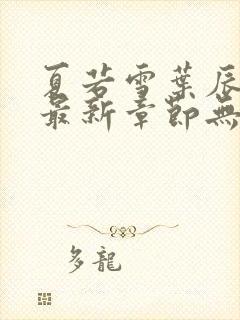 夏若雪葉辰
最新章節無
多龍